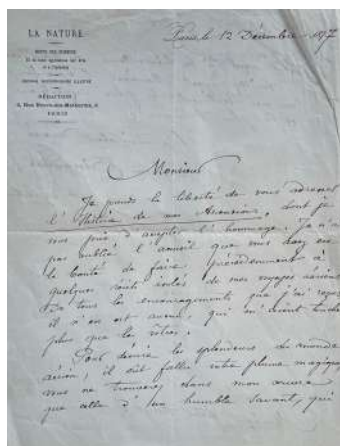 LA NATURE
REVUE DES SCIENCES
RÉDACTION
PARIS
Paris, le 12 Décembre 1877
Monsieur
Je prends la liberté de vous adresser
l'Histoire de mes Ascensions, dont je
vous prie d'accepter l'hommage. Je n'ai
pas oublié l'accueil que vous avez eu
la bonté de faire, précédemment à
quelques récits isolés de mes voyages aériens.
De tous les encouragements que j'ai reçus
il n'en est aucun, qui m'aient touché
plus que les vôtres.
Pour décrire les splendeurs du monde
aérien, il eût fallu votre plume magique,
vous ne trouverez dans mon œuvre
que celle d'un humble savant, qui